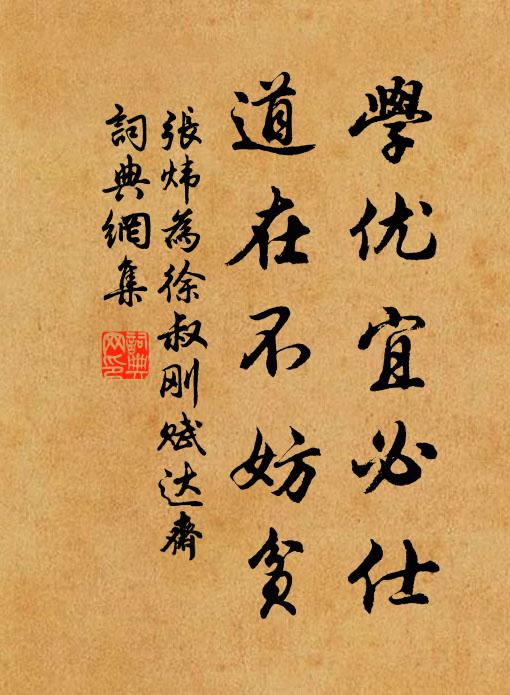 學优宜必仕
道在不妨贫
張炜為徐叔刚赋达齋
詞典網集
詞典
网印